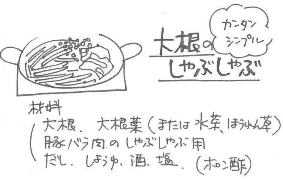 カンタン
シンプル
大根の
しゃぶしゃぶ
材料
大根、大根葉(または水菜、ほうれん草)
豚バラ肉のしゃぶしゃぶ用
だし、しょうゆ、酒、塩、(ポン酢)